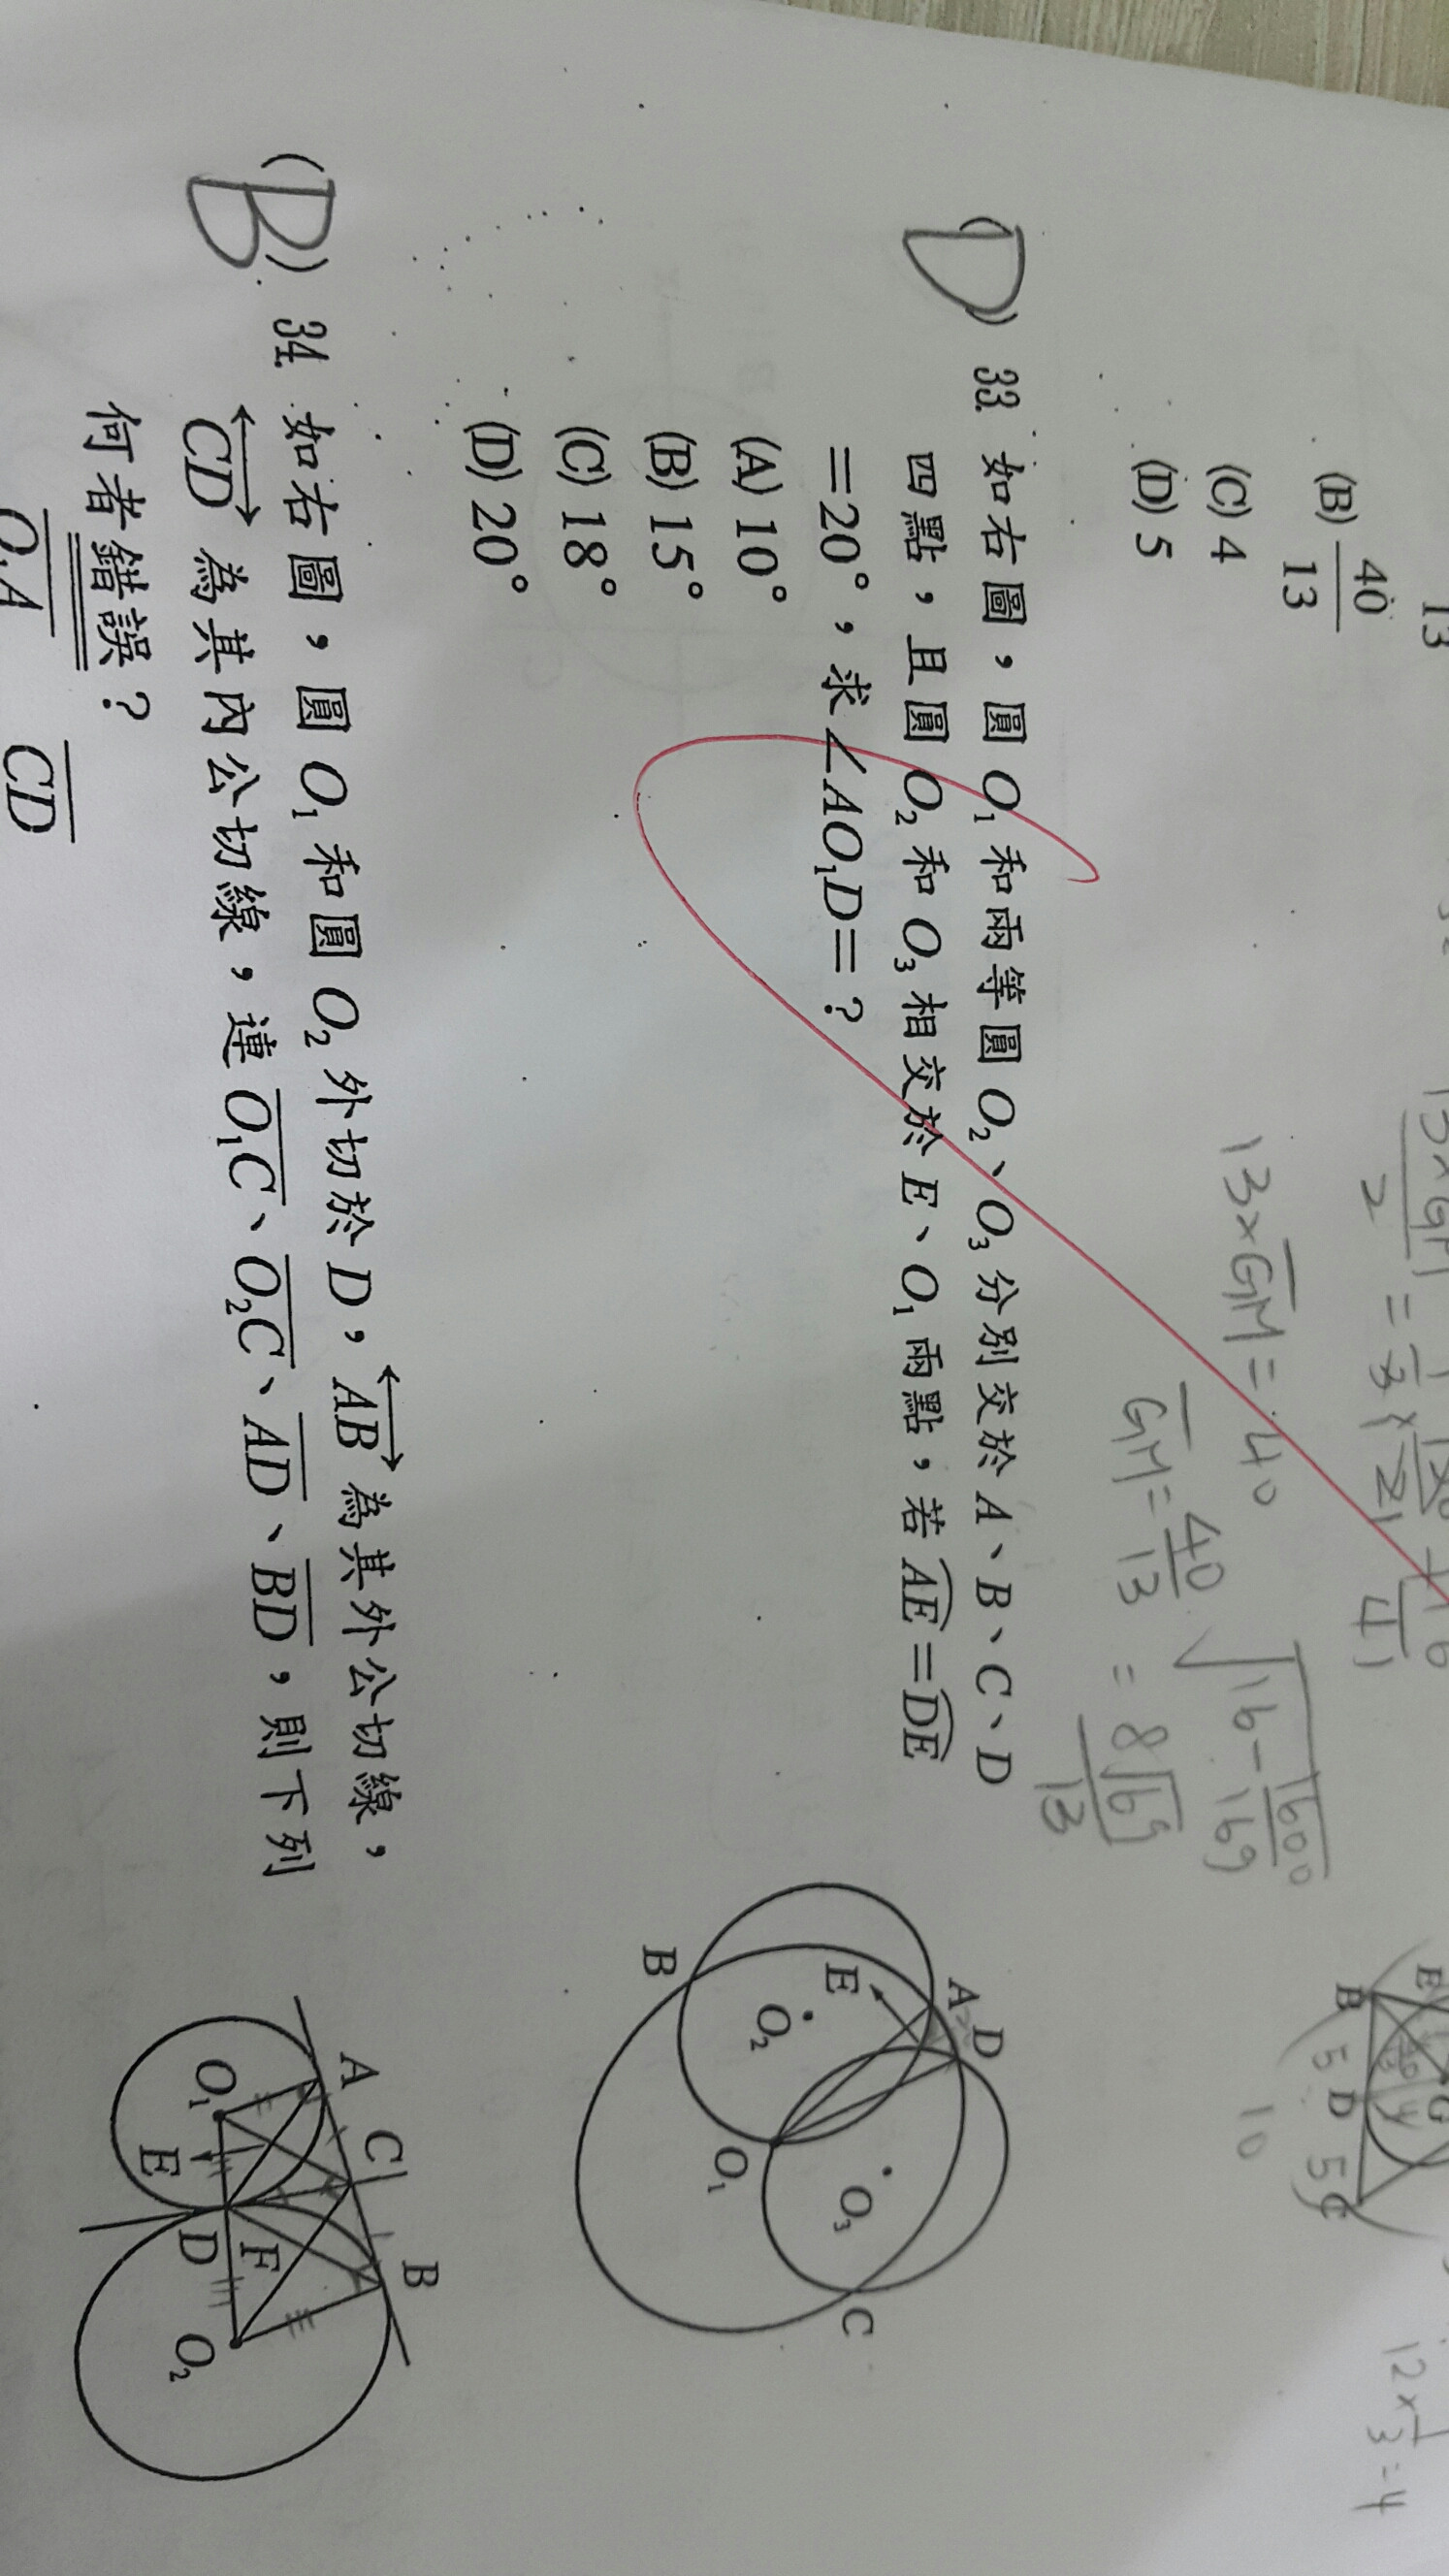 13
(B) 40/13
(C) 4
(D) 5
13×GM=40
GM=40/13
√16-1600/169
=8√69/13
E
G
B 5 D 5 C
10
12×1/3=4
(D) 33. 如右圖，圓 O₁ 和兩等圓 O₂、O₃ 分別交於 A、B、C、D
四點，且圓 O₂ 和 O₃ 相交於 E、O₁ 兩點，若 AE=DE
=20°，求∠AO₁D=？
(A) 10°
(B) 15°
(C) 18°
(D) 20°
A D
E
B O₂ O₃
O₁ C
(B) 34. 如右圖，圓 O₁ 和圓 O₂ 外切於 D，AB 為其外公切線，
CD 為其內公切線，連 O₁C、O₂C、AD、BD，則下列
何者錯誤？
O₁A CD
A C B
O₁ E F
D O₂